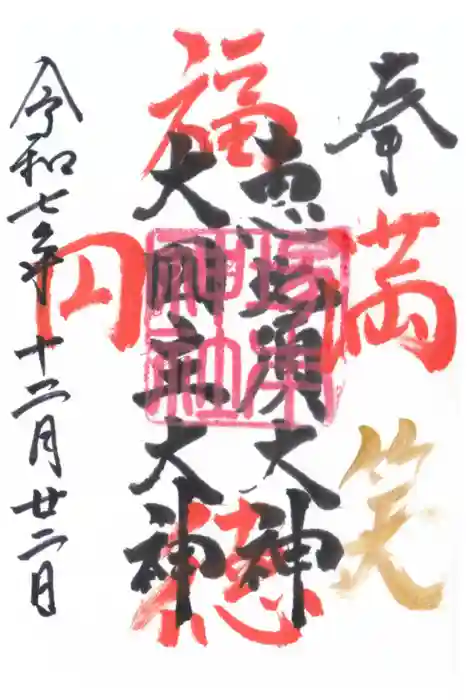 奉
笑
恵比須大神
大国主大神
福徳円満
令和七年十二月廿二日